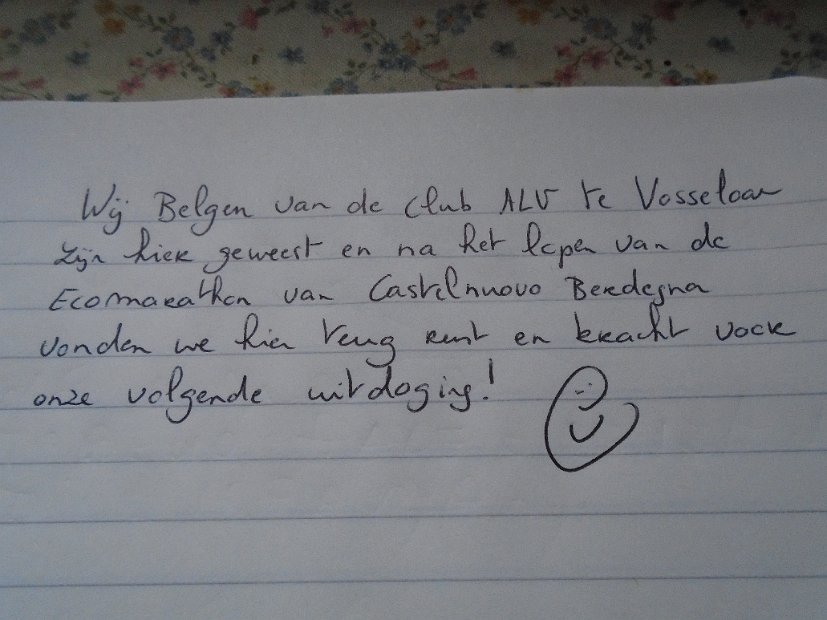 Wij Belgen van de club ALV te Vosselaar
zijn hier geweest en na het lopen van de
Ecomarathon van Castelnuovo Berdegna
vonden we hier terug rust en kracht voor
onze volgende uitdaging!